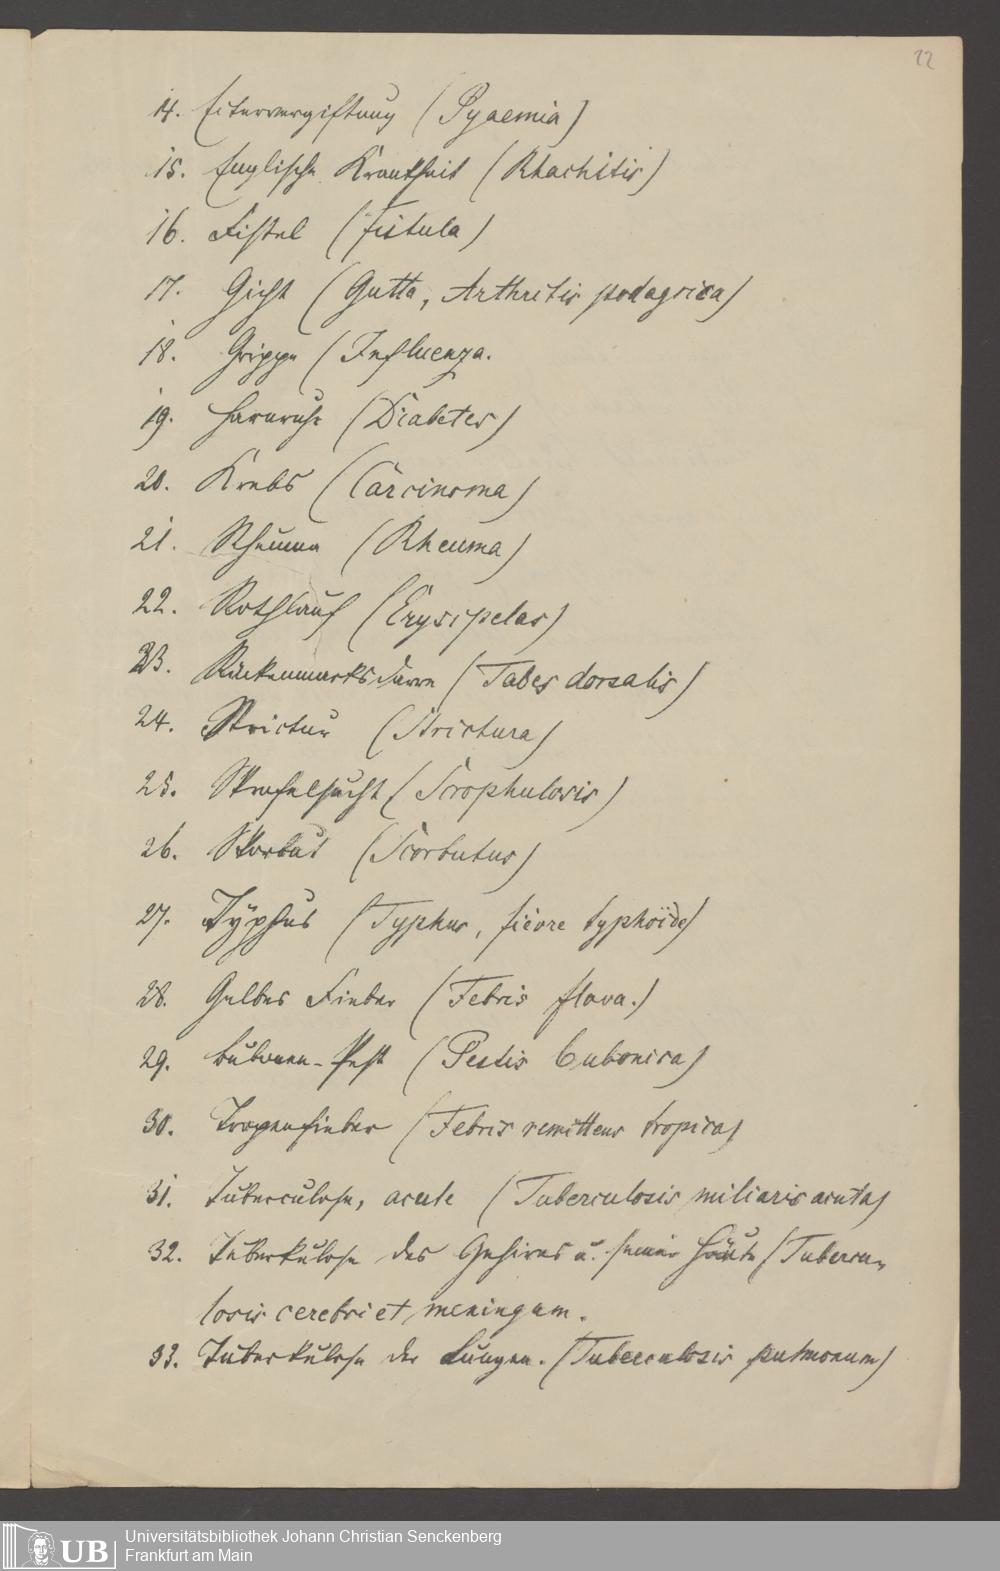 22
14. Eitervergiftung (Pyaemia)
15. Englische Krankheit (Rhachitis)
16. Fistel (Fistula)
17. Gicht (Gutta, Arthritis podagrica)
18. Grippe (Influenza.
19. Harnruhr (Diabetes)
20. Krebs (Carcinoma)
21. Rheuma (Rheuma)
22. Rothlauf (Erysipelas)
23. Rückenmarksdarre (Tabes dorsalis)
24. Strictur (Strictura)
25. Skrofelsucht (Scrophulosis)
26. Skorbut (Scorbutus)
27. Typhus (Typhus, fièvre typhoïde)
28. Gelbes Fieber (Febris flava.)
29. Bubonen-Pest (Pestis bubonica)
30. Tropenfieber (Febris remittens tropica)
31. Tuberculose, acute (Tuberculosis miliaris acuta)
32. Tuberkulose des Gehirns u. seiner Häute (Tubercu-
losis cerebri et meningum.
33. Tuberkulose der Lungen. (Tuberculosis pulmonum)
UB
Universitätsbibliothek Johann Christian Senckenberg
Frankfurt am Main